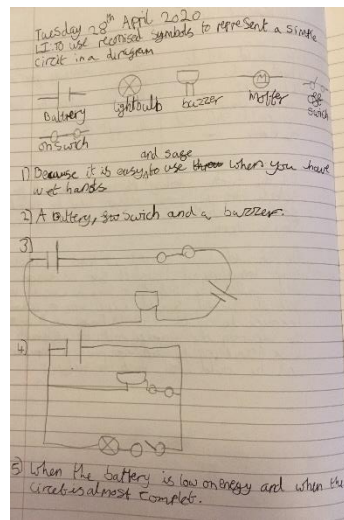 Tuesday 28th April 2020
LI: To use reconised symbols to represent a simple
circit in a diragram
Battery lightbulb buzzer Motter off
swich
on swich
and safe
1) Because it is easy, to use when you have
wet hands
2) A Battery, swich and a buzzer.
3)
4)
5) When the battery is low on energy and when the
circet is almost complet.